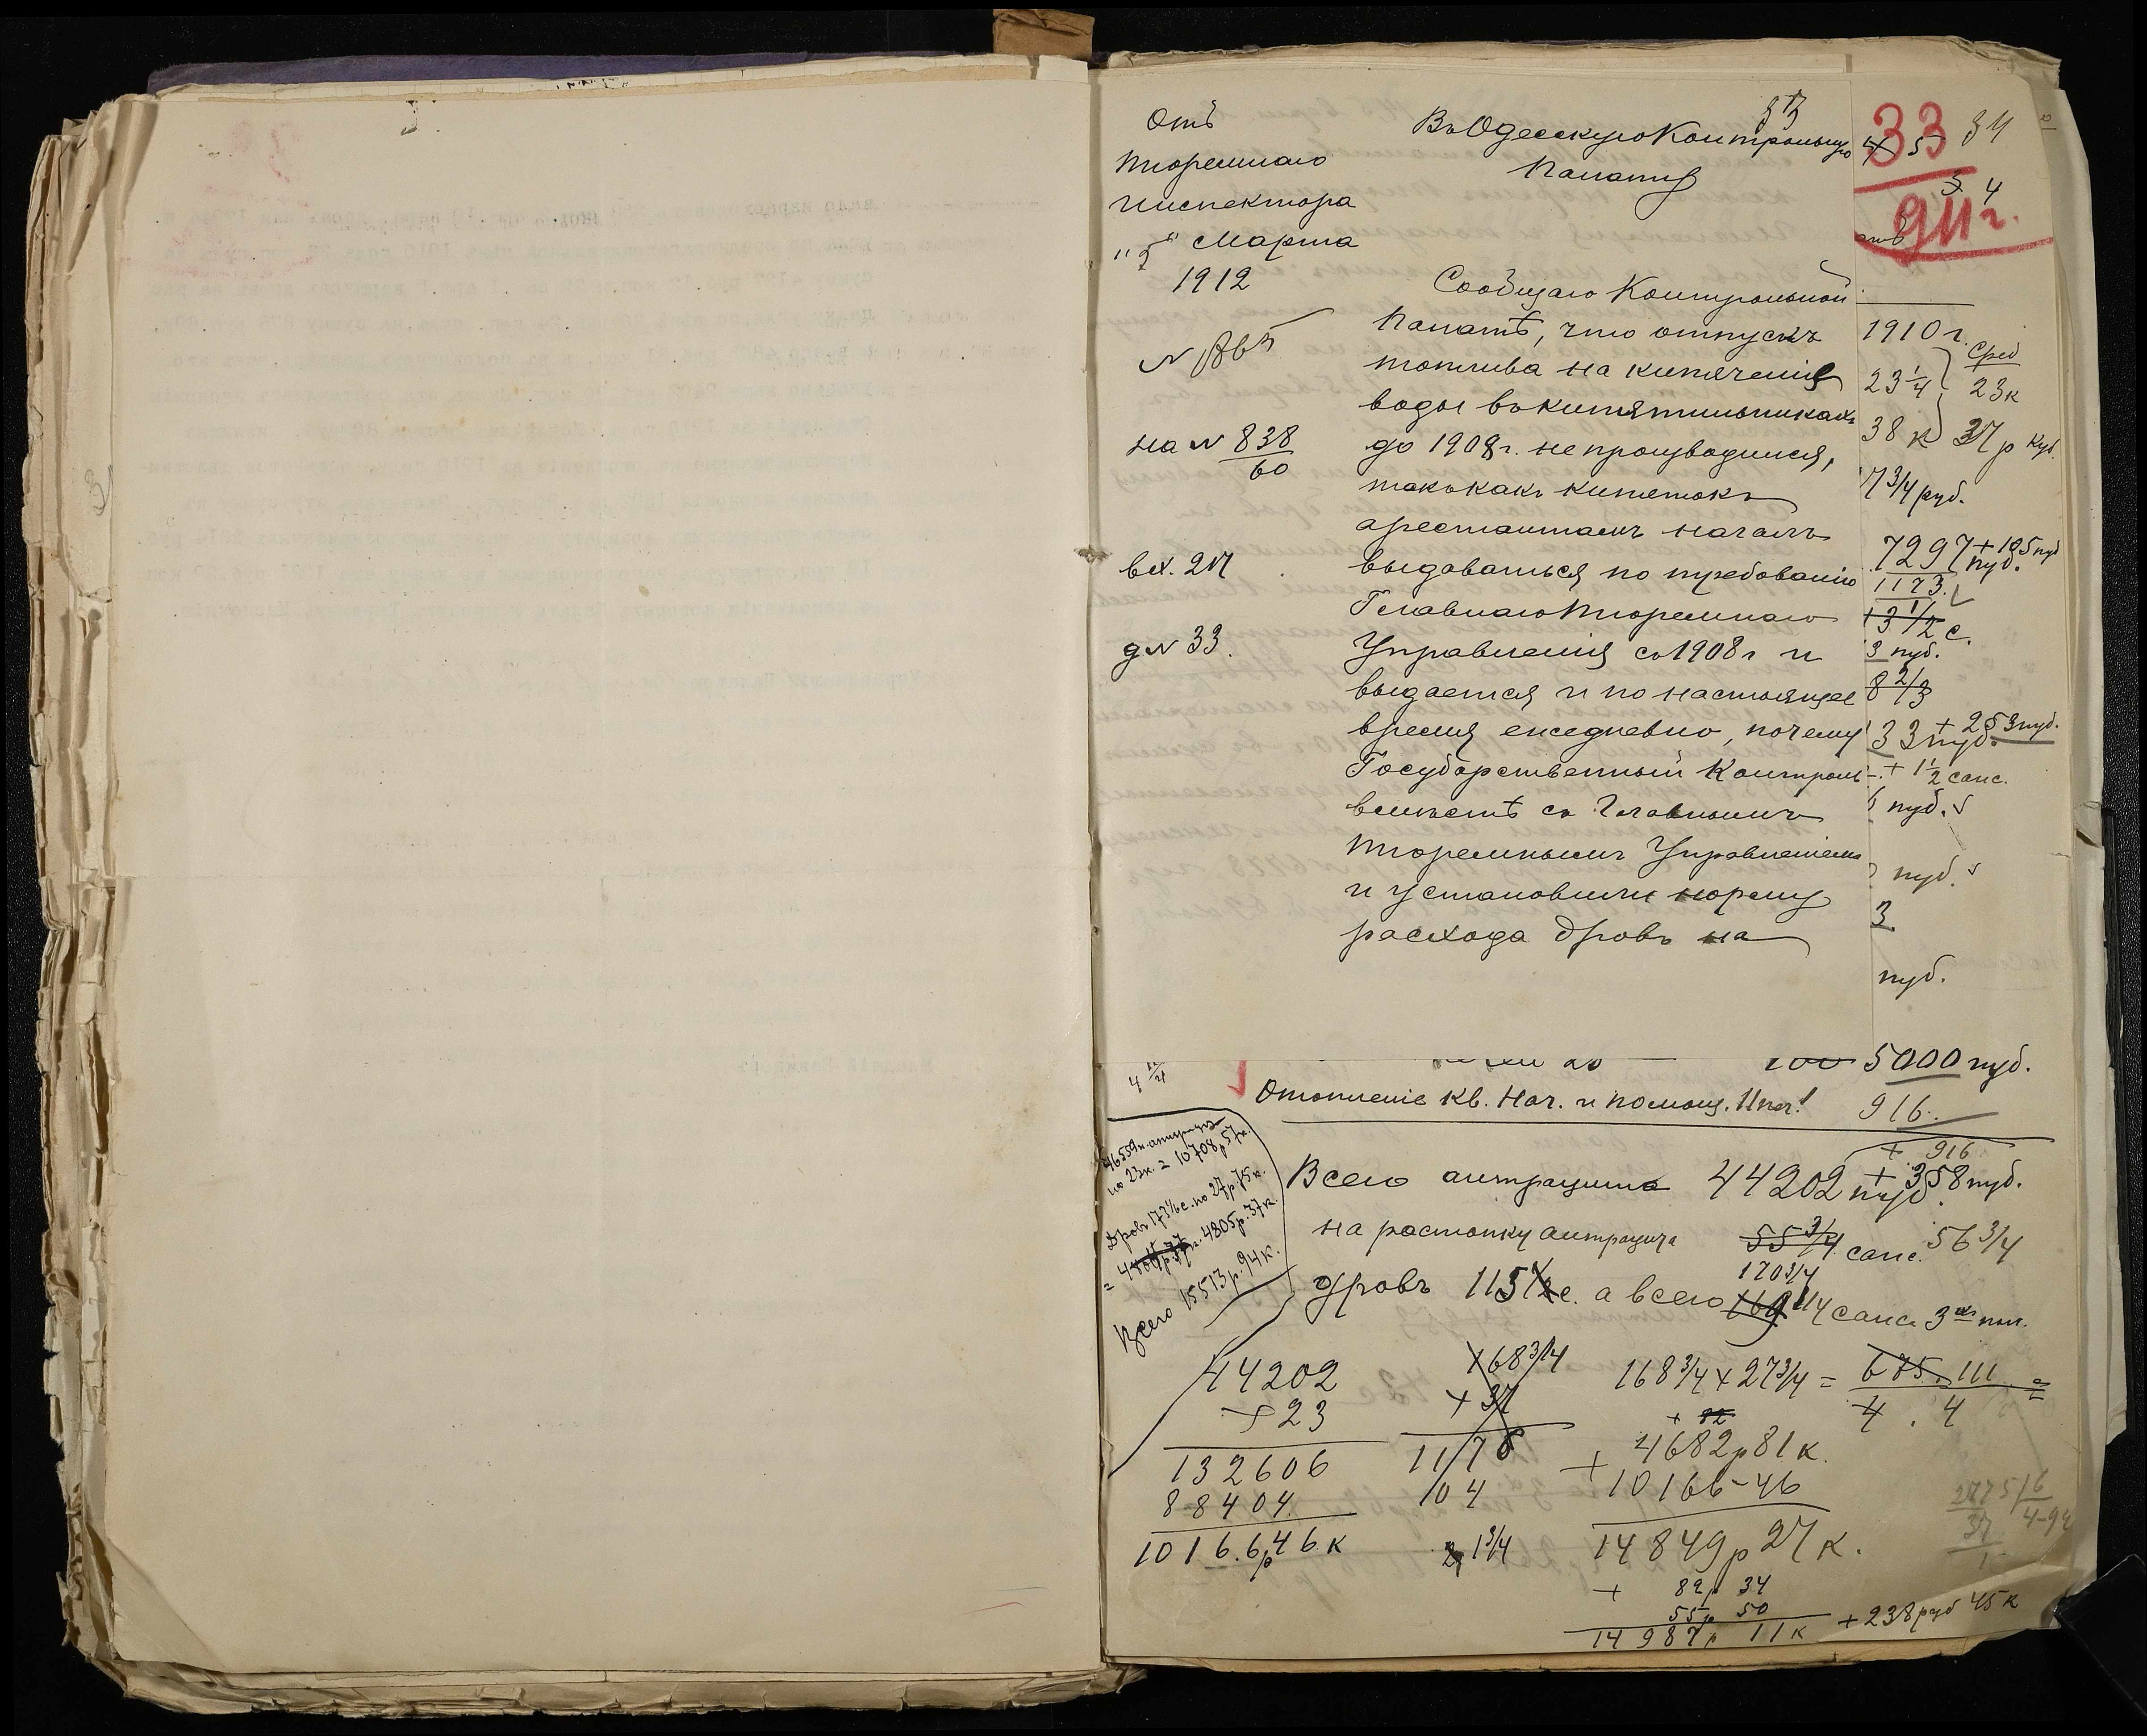 Отъ
Тюремнаго
Инспектора
"5" Марта
1912
N 1865
на N 838/60
вх. 217
д N 33.
Въ Одесскую Контрольную
Палату
Сообщаю Контрольной
Палатѣ, что отпускъ
топлива на кипяченіе
воды въ кипятильникахъ
до 1908 г. не производился,
такъ какъ кипятокъ
арестантамъ началъ
выдаваться по требованію
Главнаго Тюремнаго
Управленія съ 1908 г и
выдается и по настоящее
время ежедневно, почему
Государственный Контроль
вмѣстѣ съ Главнымъ
Тюремнымъ Управленіемъ
и установили норму
расхода дровъ на
33 34
911 г.
1910 г.
23 1/4 } Сред 23 к
38 к } 37 р куб.
7 3/4 руб.
7297 пуд. + 105 пуд
1173.
+ 3 1/2 с.
3 пуд.
8 2/3
33 пуд. + 253 пуд.
+ 1 1/2 саж.
пуд.
пуд.
3
пуд.
5000 пуд.
Отопленіе кв. Нач. и помощ. Инсп. 916.
+ 916
Всего антрацита 44202 пуд + 358 пуд.
на растопку антрацита 55 3/4 саж. 56 3/4
170 3/4
дровъ 115 с. а всего 169 1/4 саж. 3 пол.
46559 п. антрацита
по 23 к. = 10708 р 57 к.
Дровъ 173 1/6 с. по 27 р. 75 к.
= 4805 р. 37 к.
Всего 15513 р. 94 к.
44202
× 23
132606
88404
1016.6 р 46 к
168 3/4
× 37
1176
104
1 3/4
168 3/4 × 27 3/4 = 675 . 111 / 4 . 4 =
+ 4682 р 81 к.
10166 - 46
14849 р 27 к.
+ 82 р 34
55 р 50
14987 р 11 к
+ 238 руб 45 к